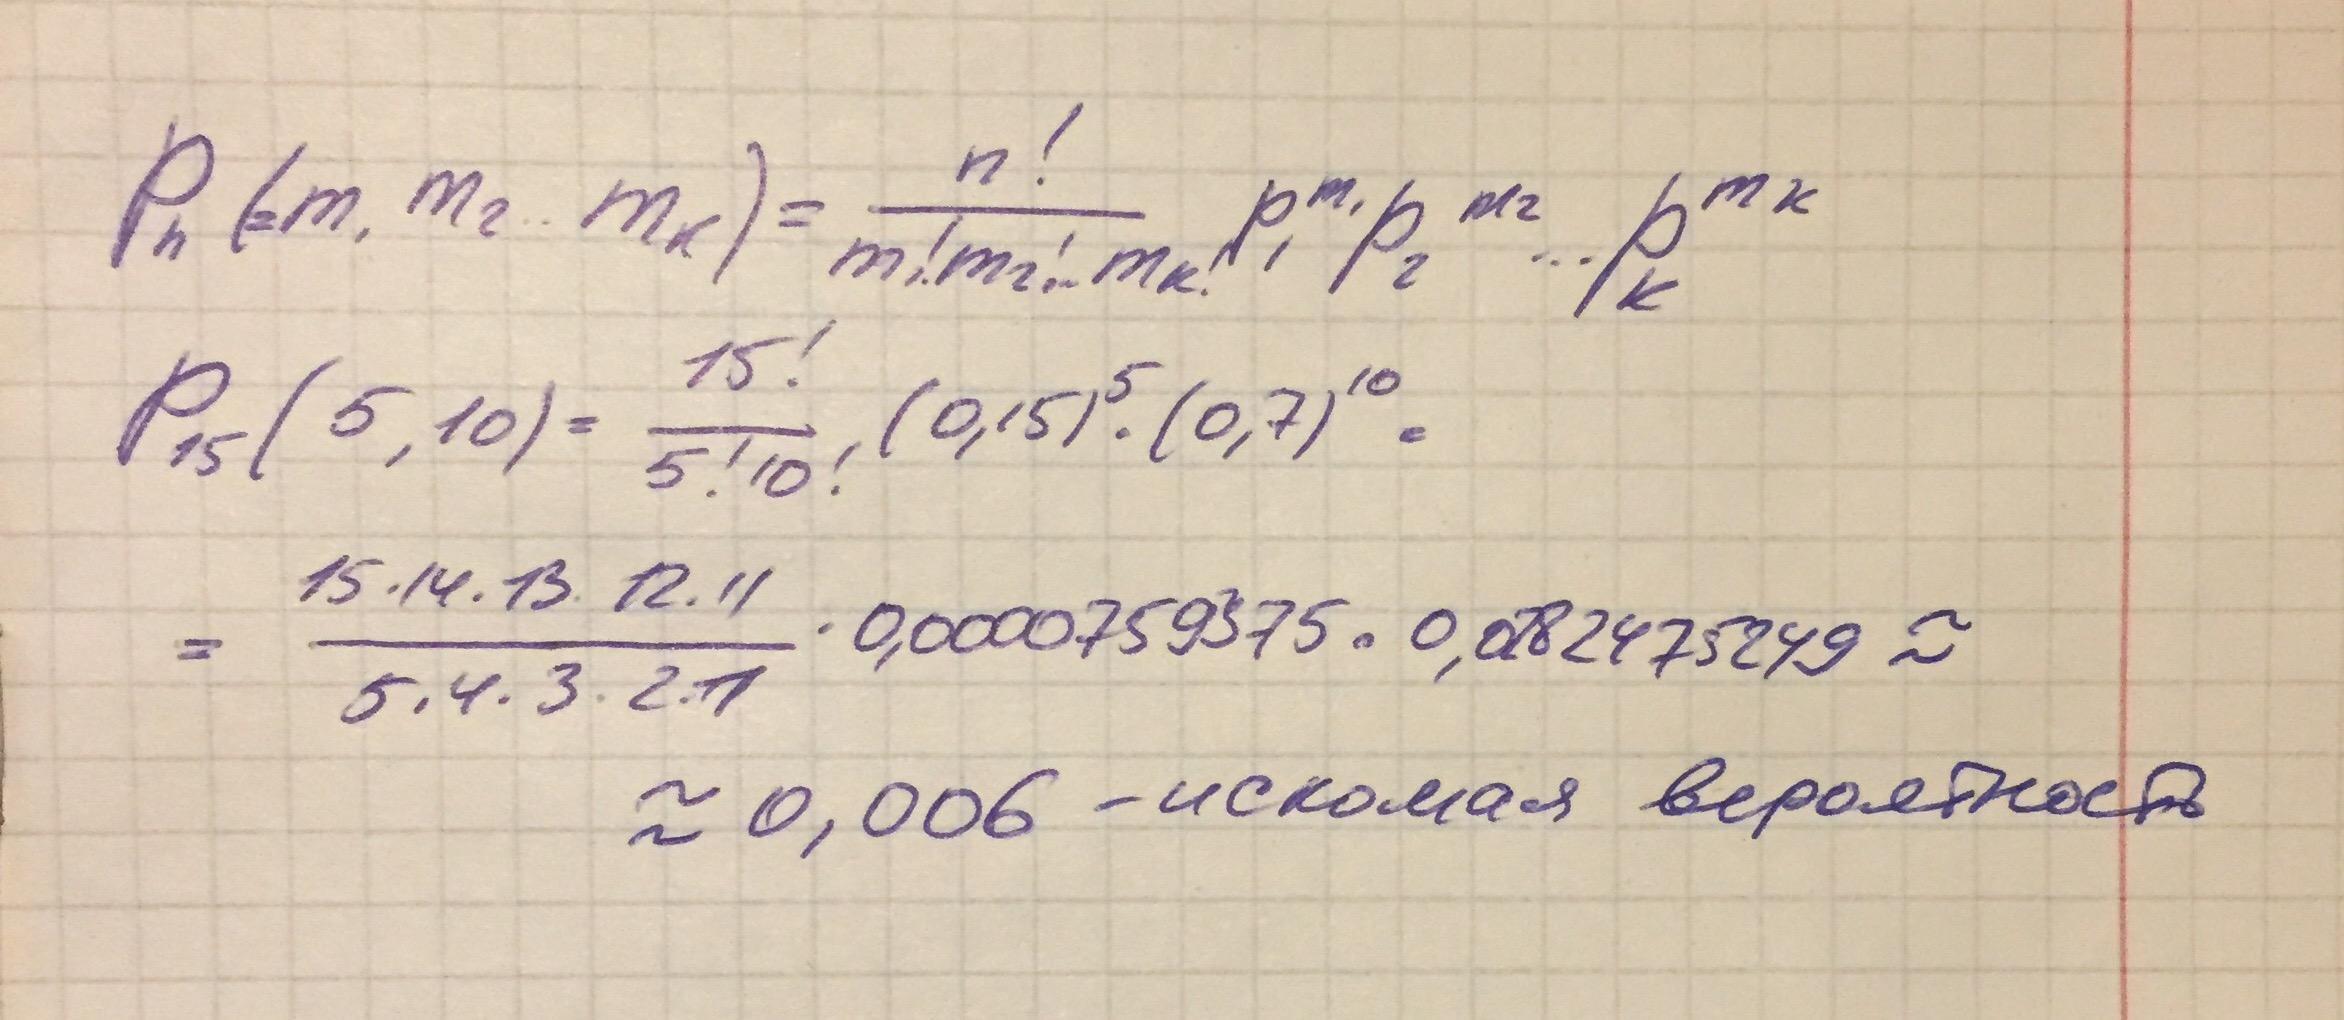 Pn(=m₁ m₂.. mк) = n! / m₁! m₂!... mк! p₁^m₁ p₂^m₂ ... pк^mк
P₁₅(5,10) = 15! / 5! 10! · (0,15)⁵ · (0,7)¹⁰ =
= 15·14·13·12·11 / 5·4·3·2·1 · 0,0000759375 · 0,0282475249 ≈
≈ 0,006 – искомая вероятность